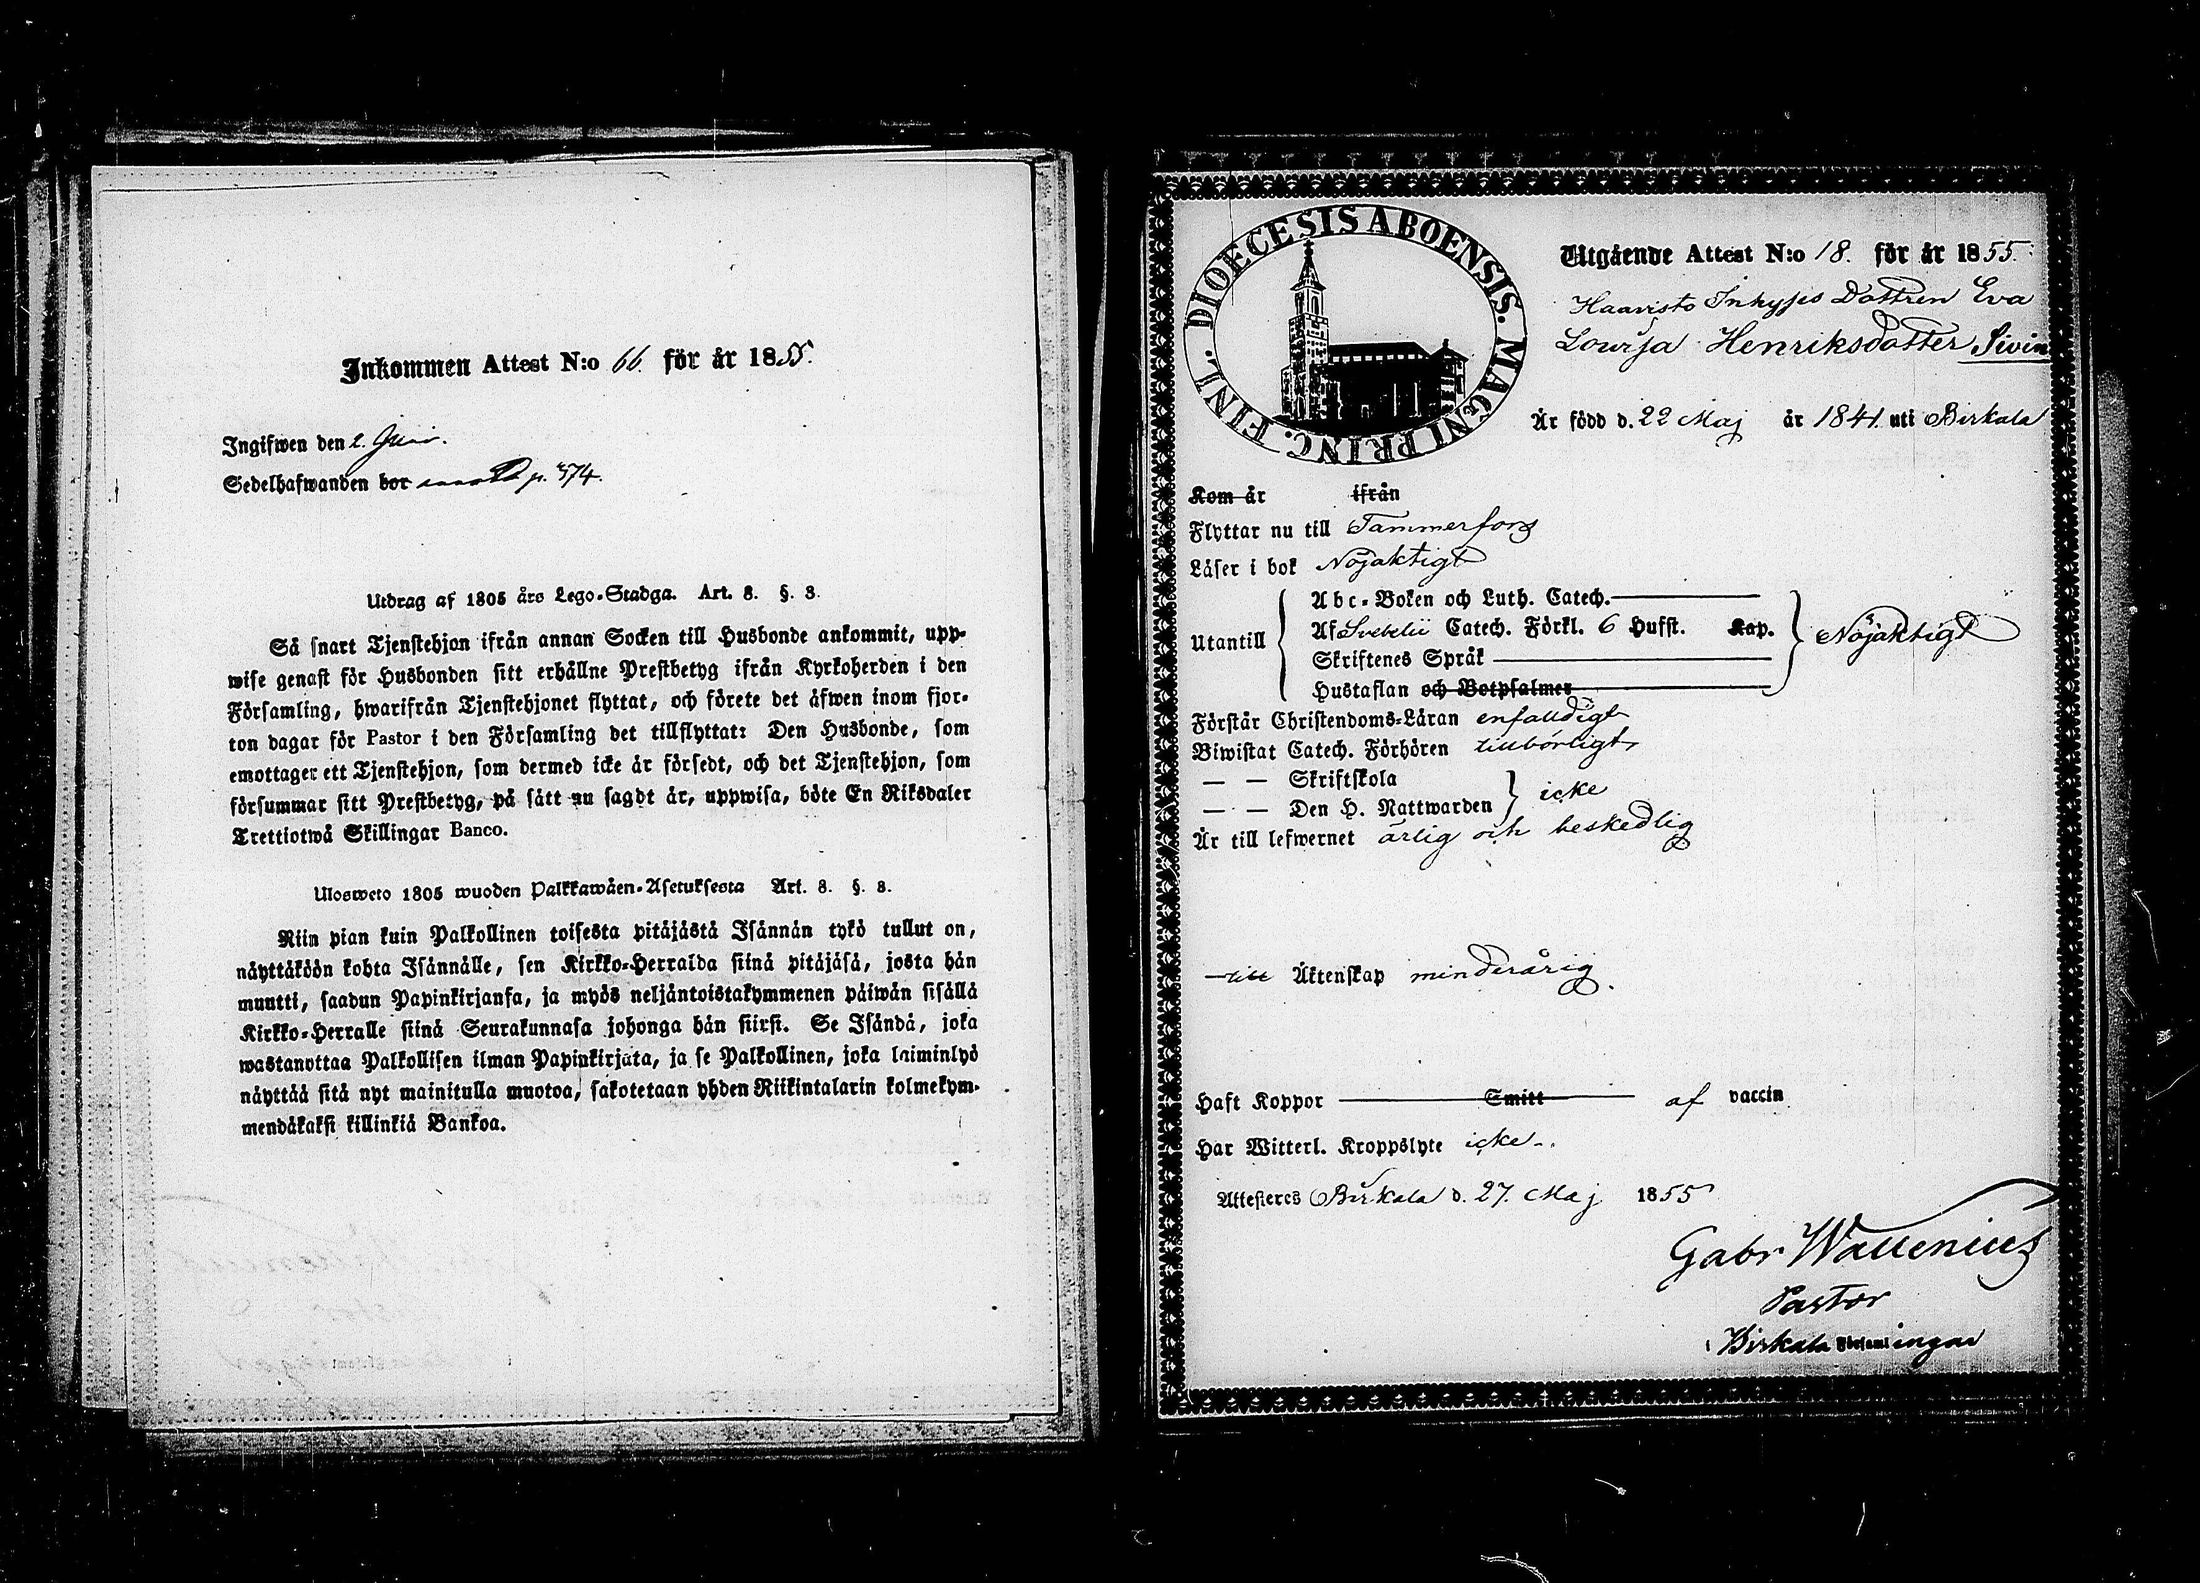 Inkommen Attest N:o 66. för år 1855.
Ingifwen den 2. Juni.
Sedelhafwanden bor p. 574.
Utdrag af 1805 års Lego-Stadga. Art. 8. §. 3.
Så snart Tjenstehjon ifrån annan Socken till Husbonde ankommit, upp-
wise genast för Husbonden sitt erhållne Prestbetyg ifrån Kyrkoherden i den
Församling, hwarifrån Tjenstehjonet flyttat, och förete det äfwen inom fjor-
ton dagar för Pastor i den Församling det tillflyttat: Den Husbonde, som
emottager ett Tjenstehjon, som dermed icke är försedt, och det Tjenstehjon, som
försummar sitt Prestbetyg, på sätt nu sagdt är, uppwisa, böte En Riksdaler
Trettiotwå Skillingar Banco.
Ulosweto 1805 wuoden Palkkawäen-Asetuksesta Art. 8. §. 3.
Niin pian kuin Palkollinen toisesta pitäjästä Isännän tykö tullut on,
näyttäköön kohta Isännälle, sen Kirkko-Herralda siinä pitäjäsä, josta hän
muutti, saadun Papinkirjansa, ja myös neljäntoistakymmenen päiwän sisällä
Kirkko-Herralle siinä Seurakunnasa johonga hän siirsi. Se Isändä, joka
wastanottaa Palkollisen ilman Papinkirjata, ja se Palkollinen, joka laiminlyö
näyttää sitä nyt mainitulla muotoa, sakotetaan yhden Riikintalarin kolmekym-
mendäkaksi killinkiä Bankoa.
DIOECESIS ABOENSIS. MAGNI PRINC. FINL.
Utgående Attest N:o 18. för år 1855.
Haavisto Inhyses Dottren Eva
Lovisa Henriksdotter Sivin
Är född d. 22 Maj år 1841. uti Birkala
Kom år ifrån
Flyttar nu till Tammerfors
Läser i bok Nöjaktigt
Utantill
Abc-Boken och Luth. Catech.
Af Svebelii Catech. Förkl. 6 Hufst. Kap.
Skriftenes Språk
Hustaflan och Botpsalmer
Nöjaktigt
Förstår Christendoms-Läran enfaldigt
Biwistat Catech. Förhören tillbörligt
— — Skriftskola
— — Den H. Nattwarden
icke
Är till lefwernet ärlig och beskedlig
— till Äktenskap minderårig.
Haft Koppor Smitt af vaccin
Har Witterl. Kroppslyte icke.
Attesteres Birkala d. 27. Maj 1855
Gabr Wallenius
Pastor
i Birkala Församlingar